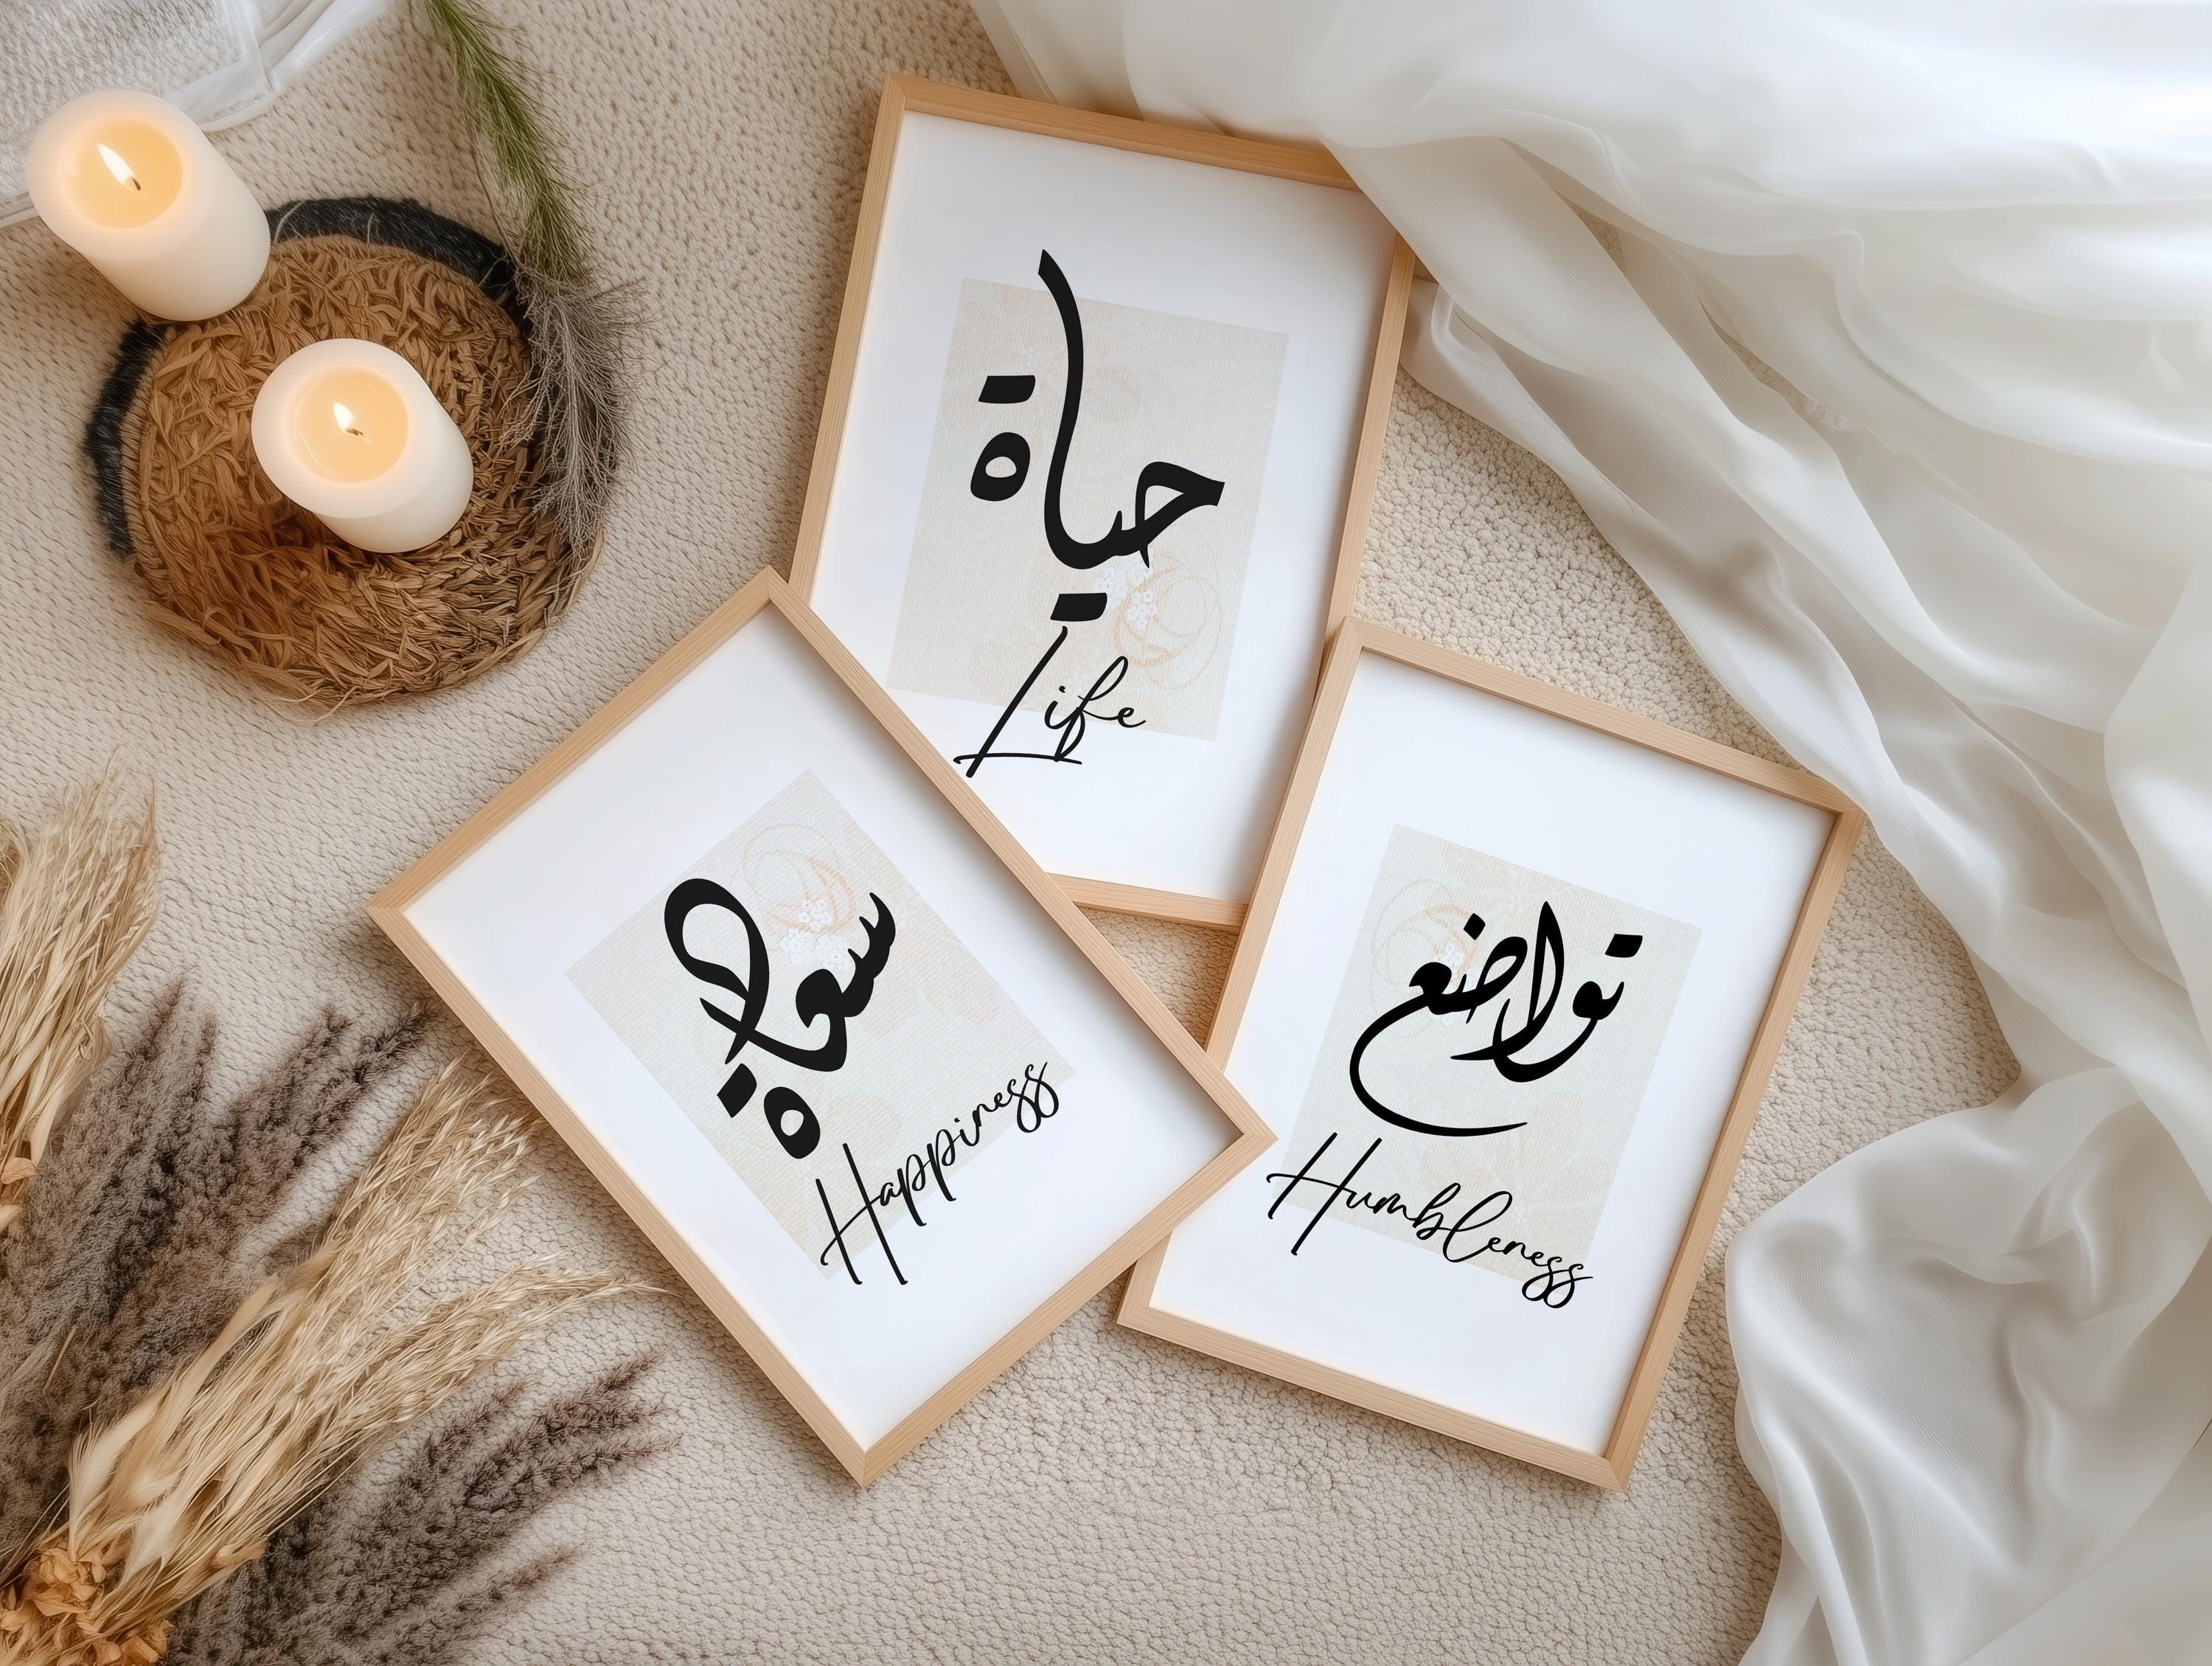 حياة
Life
سعادة
Happiness
تواضع
Humbleness